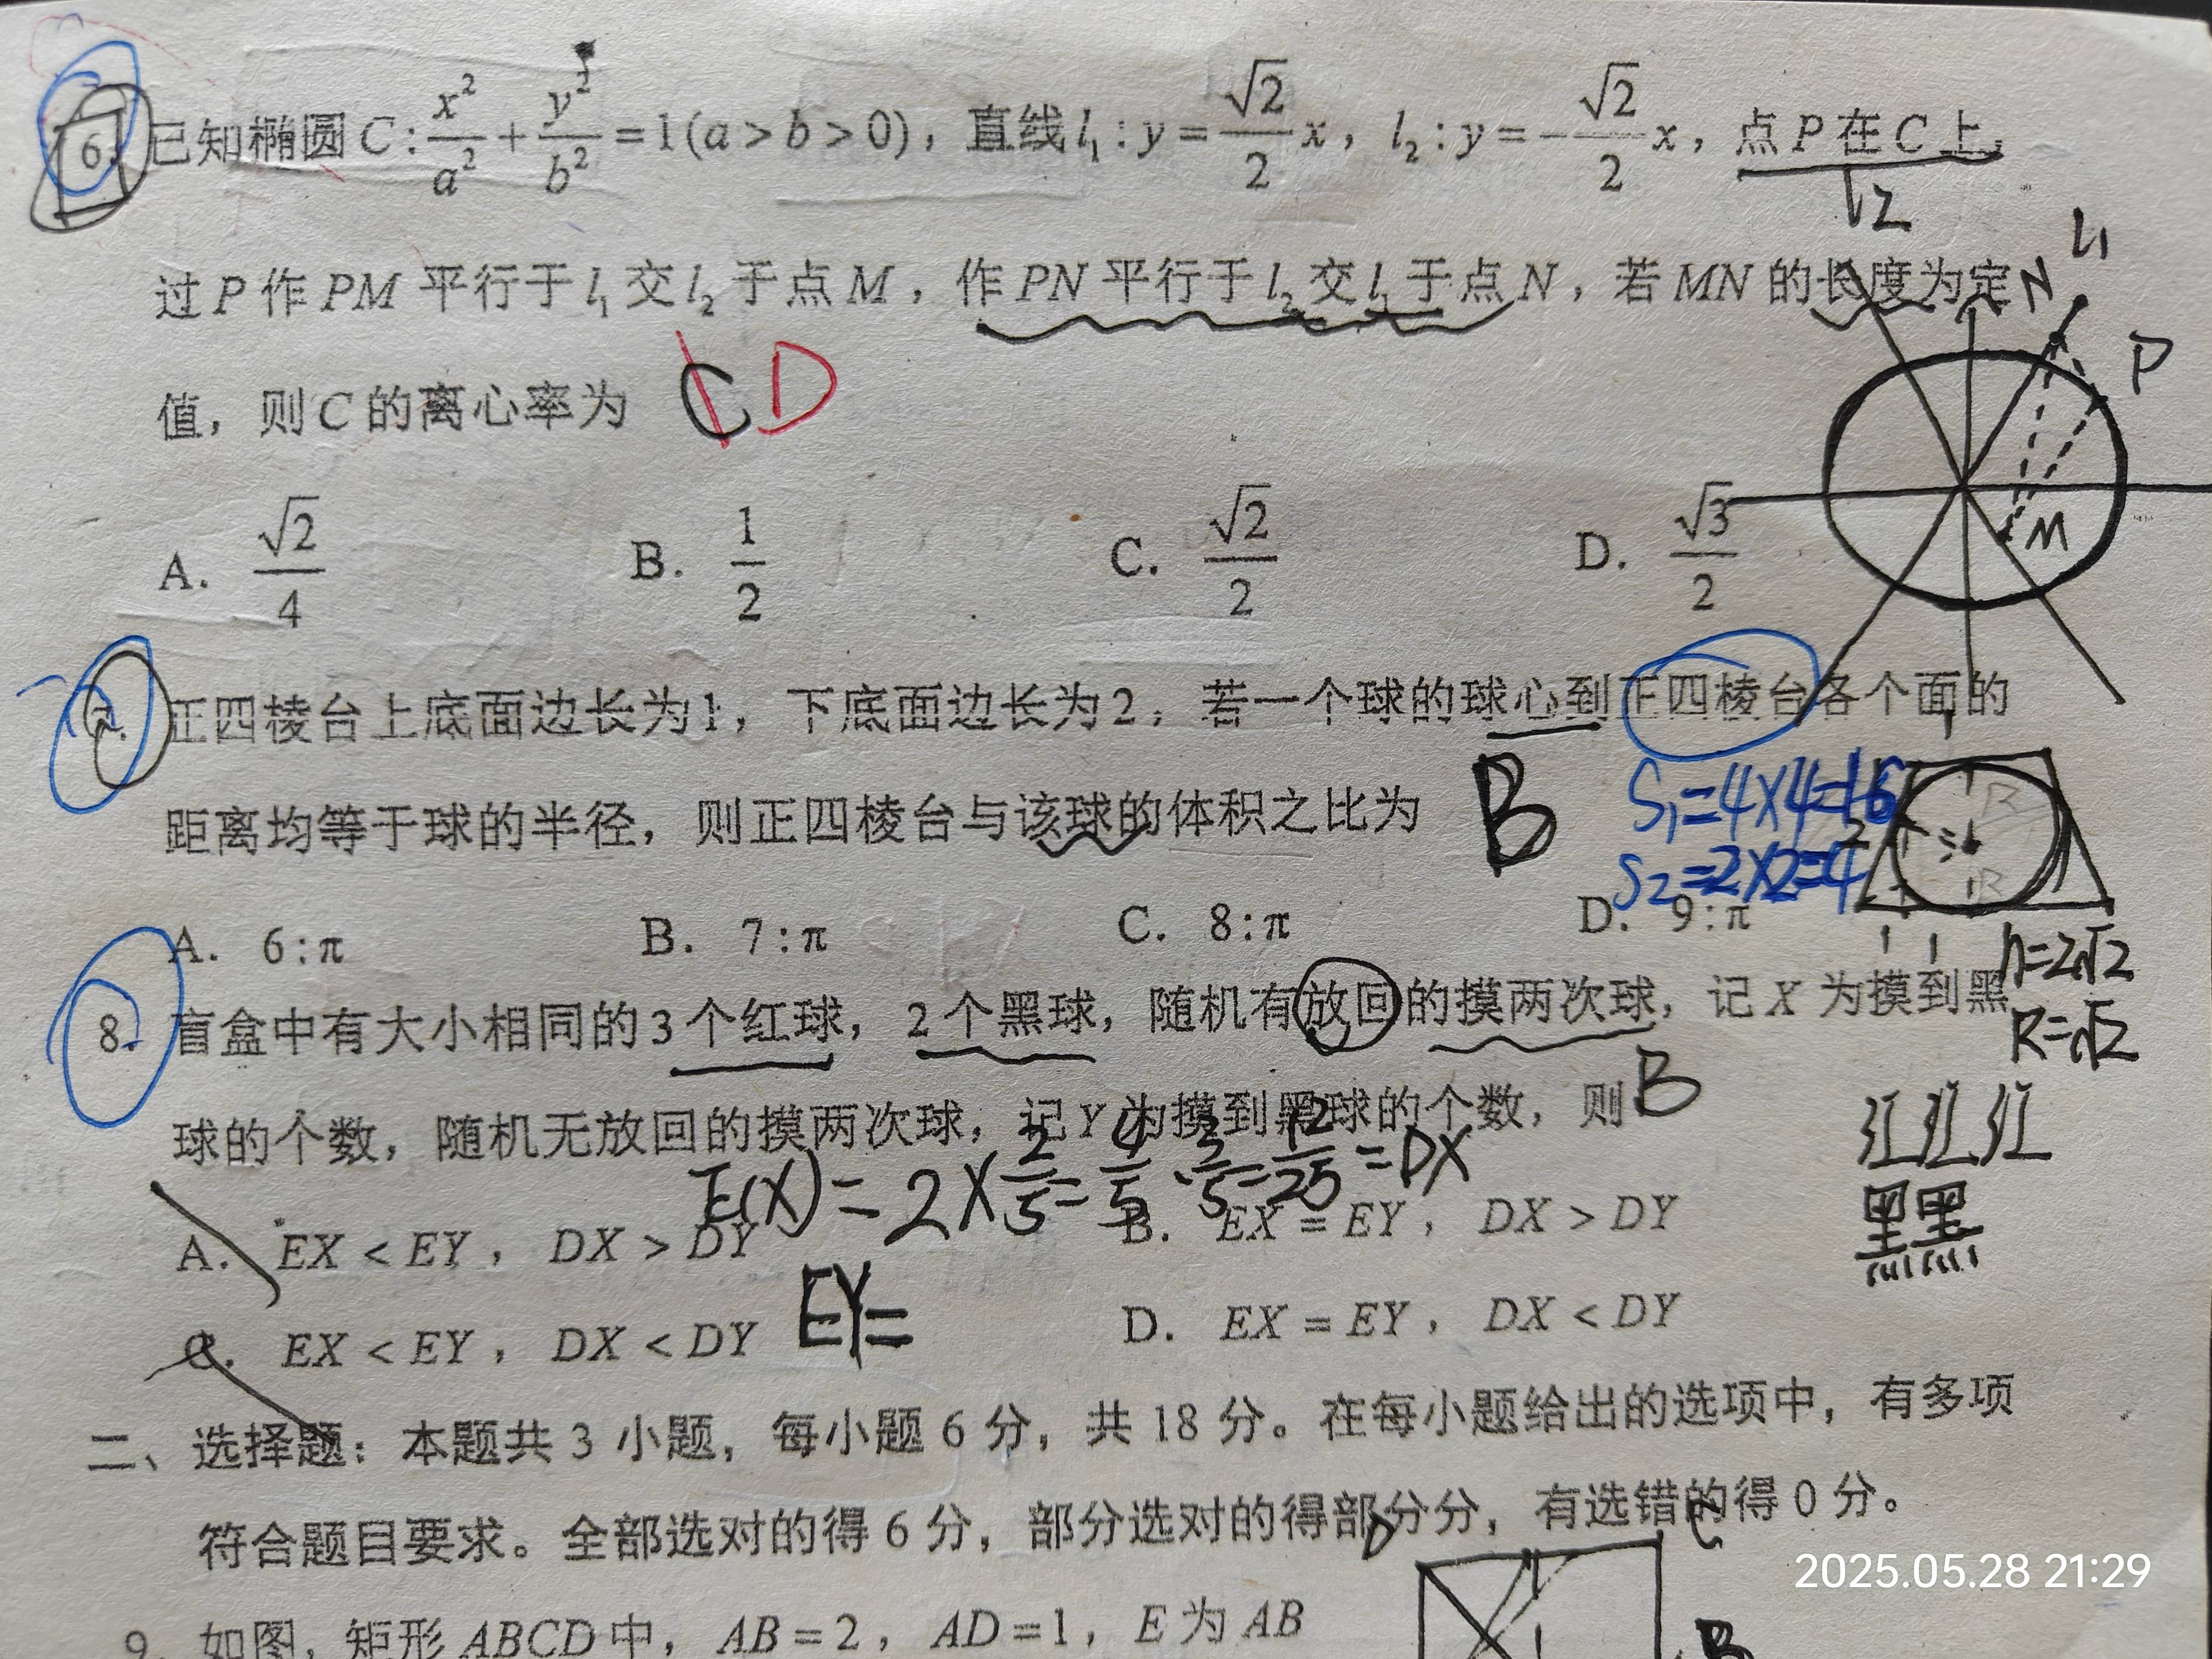 6. 已知椭圆C:x²/a²+y²/b²=1(a>b>0)，直线l₁:y=√2/2 x，l₂:y=-√2/2 x，点P在C上，
l2
l1
过P作PM平行于l₁交l₂于点M，作PN平行于l₂交l₁于点N，若MN的长度为定
N
P
值，则C的离心率为 C D
M
A. √2/4 B. 1/2 C. √2/2 D. √3/2
7. 正四棱台上底面边长为1，下底面边长为2，若一个球的球心到正四棱台各个面的
1
S₁=4×4=16
距离均等于球的半径，则正四棱台与该球的体积之比为 B
2
S2=2×2=4
A. 6:π B. 7:π C. 8:π D. 9:π
1 1
h=2√2
8. 盲盒中有大小相同的3个红球，2个黑球，随机有放回的摸两次球，记X为摸到黑
R=√2
球的个数，随机无放回的摸两次球，记Y为摸到黑球的个数，则 B
红红红
E(X)=2×2/5=4/5·3/5=12/25=DX
黑黑
A. EX<EY，DX>DY B. EX=EY，DX>DY
EY=
C. EX<EY，DX<DY D. EX=EY，DX<DY
二、选择题：本题共3小题，每小题6分，共18分。在每小题给出的选项中，有多项
符合题目要求。全部选对的得6分，部分选对的得部分分，有选错的得0分。
D C
2025.05.28 21:29
9. 如图，矩形ABCD中，AB=2，AD=1，E为AB
B